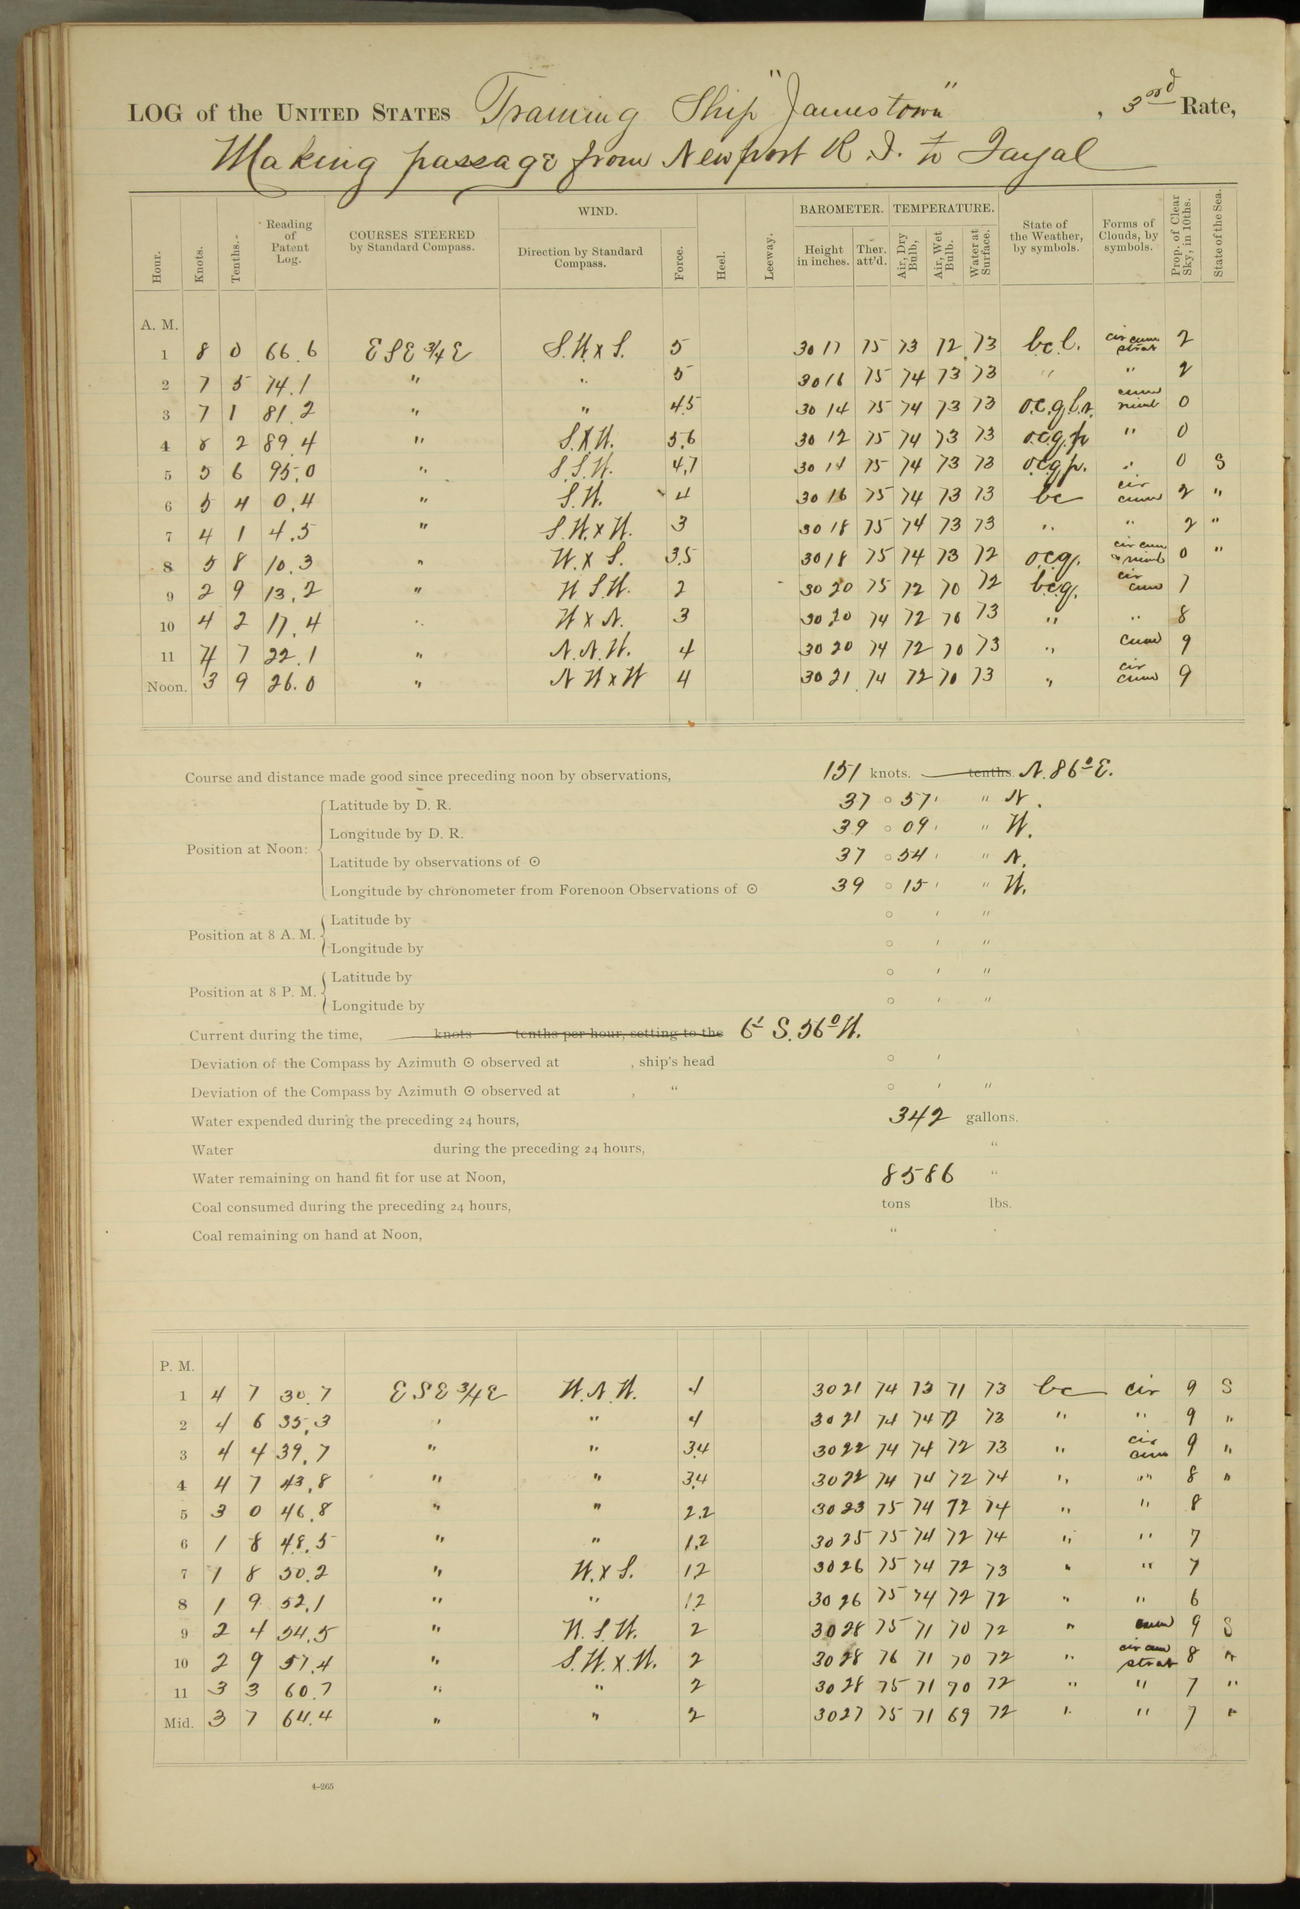 LOG of the UNITED STATES Training Ship "Jamestown", 3rd Rate,
Making passage from Newport R.I. to Fayal
Hour. Knots. Tenths. Reading of Patent Log. COURSES STEERED by Standard Compass. WIND. Direction by Standard Compass. Force. Heel. Leeway. BAROMETER. Height in inches. Ther. att'd. TEMPERATURE. Air, Dry Bulb, Air, Wet Bulb. Water at Surface. State of the Weather, by symbols. Forms of Clouds, by symbols. Prop. of Clear Sky, in 10ths. State of the Sea.
A. M.
1 8 0 66.6 ESE 3/4 E S.W x S. 5 30 17 75 73 72 73 b.c.l. cir cum strat 2
2 7 5 74.1 " " 5 30 16 75 74 73 73 " " 2
3 7 1 81.2 " " 4.5 30 14 75 74 73 73 o.c.q.l.r. cum nimb 0
4 8 2 89.4 " S.x W. 5.6 30 12 75 74 73 73 o.c.q.p " 0
5 5 6 95.0 " S.S.W. 4.7 30 14 75 74 73 73 o.c.q.p. " 0 S
6 5 4 0.4 " S.W. 4 30 16 75 74 73 73 bc cir cum 2 "
7 4 1 4.5 " S.W. x W. 3 30 18 75 74 73 73 " " 2 "
8 5 8 10.3 " W. x S. 3.5 30 18 75 74 73 72 o.c.q. cir cum nimb 0 "
9 2 9 13.2 " W S.W. 2 30 20 75 72 70 72 b.c.q. cir cum 7
10 4 2 17.4 " W x N. 3 30 20 74 72 70 73 " " 8
11 4 7 22.1 " N.N.W. 4 30 20 74 72 70 73 " cum 9
Noon. 3 9 26.0 " N W x W 4 30 21 74 72 70 73 " cir cum 9
Course and distance made good since preceding noon by observations, 151 knots. tenths N. 86° E.
Position at Noon: Latitude by D. R. 37 ° 57 ' " N.
Longitude by D. R. 39 ° 09 ' " W.
Latitude by observations of ☉ 37 ° 54 ' " N.
Longitude by chronometer from Forenoon Observations of ☉ 39 ° 15 ' " W.
Position at 8 A. M. Latitude by ° ' "
Longitude by ° ' "
Position at 8 P. M. Latitude by ° ' "
Longitude by ° ' "
Current during the time, knots tenths per hour, setting to the 6' S. 56° W.
Deviation of the Compass by Azimuth ☉ observed at , ship's head ° '
Deviation of the Compass by Azimuth ☉ observed at , " ° ' "
Water expended during the preceding 24 hours, 342 gallons.
Water during the preceding 24 hours, "
Water remaining on hand fit for use at Noon, 8586 "
Coal consumed during the preceding 24 hours, tons lbs.
Coal remaining on hand at Noon, "
P. M.
1 4 7 30.7 ESE 3/4 E W.N.W. 4 30 21 74 73 71 73 bc cir 9 S
2 4 6 35.3 " " 4 30 21 74 74 72 73 " " 9 "
3 4 4 39.7 " " 3.4 30 22 74 74 72 73 " cir cum 9 "
4 4 7 43.8 " " 3.4 30 22 74 74 72 74 " " 8 "
5 3 0 46.8 " " 2.2 30 23 75 74 72 74 " " 8
6 1 8 48.5 " " 1.2 30 25 75 74 72 74 " " 7
7 1 8 50.2 " W. x S. 1.2 30 26 75 74 72 73 " " 7
8 1 9 52.1 " " 1.2 30 26 75 74 72 72 " " 6
9 2 4 54.5 " W.S.W. 2 30 28 75 71 70 72 " cum 9 S
10 2 9 57.4 " S.W. x W. 2 30 28 76 71 70 72 " cir cum strat 8 "
11 3 3 60.7 " " 2 30 28 75 71 70 72 " " 7 "
Mid. 3 7 64.4 " " 2 30 27 75 71 69 72 " " 7 "
4-265